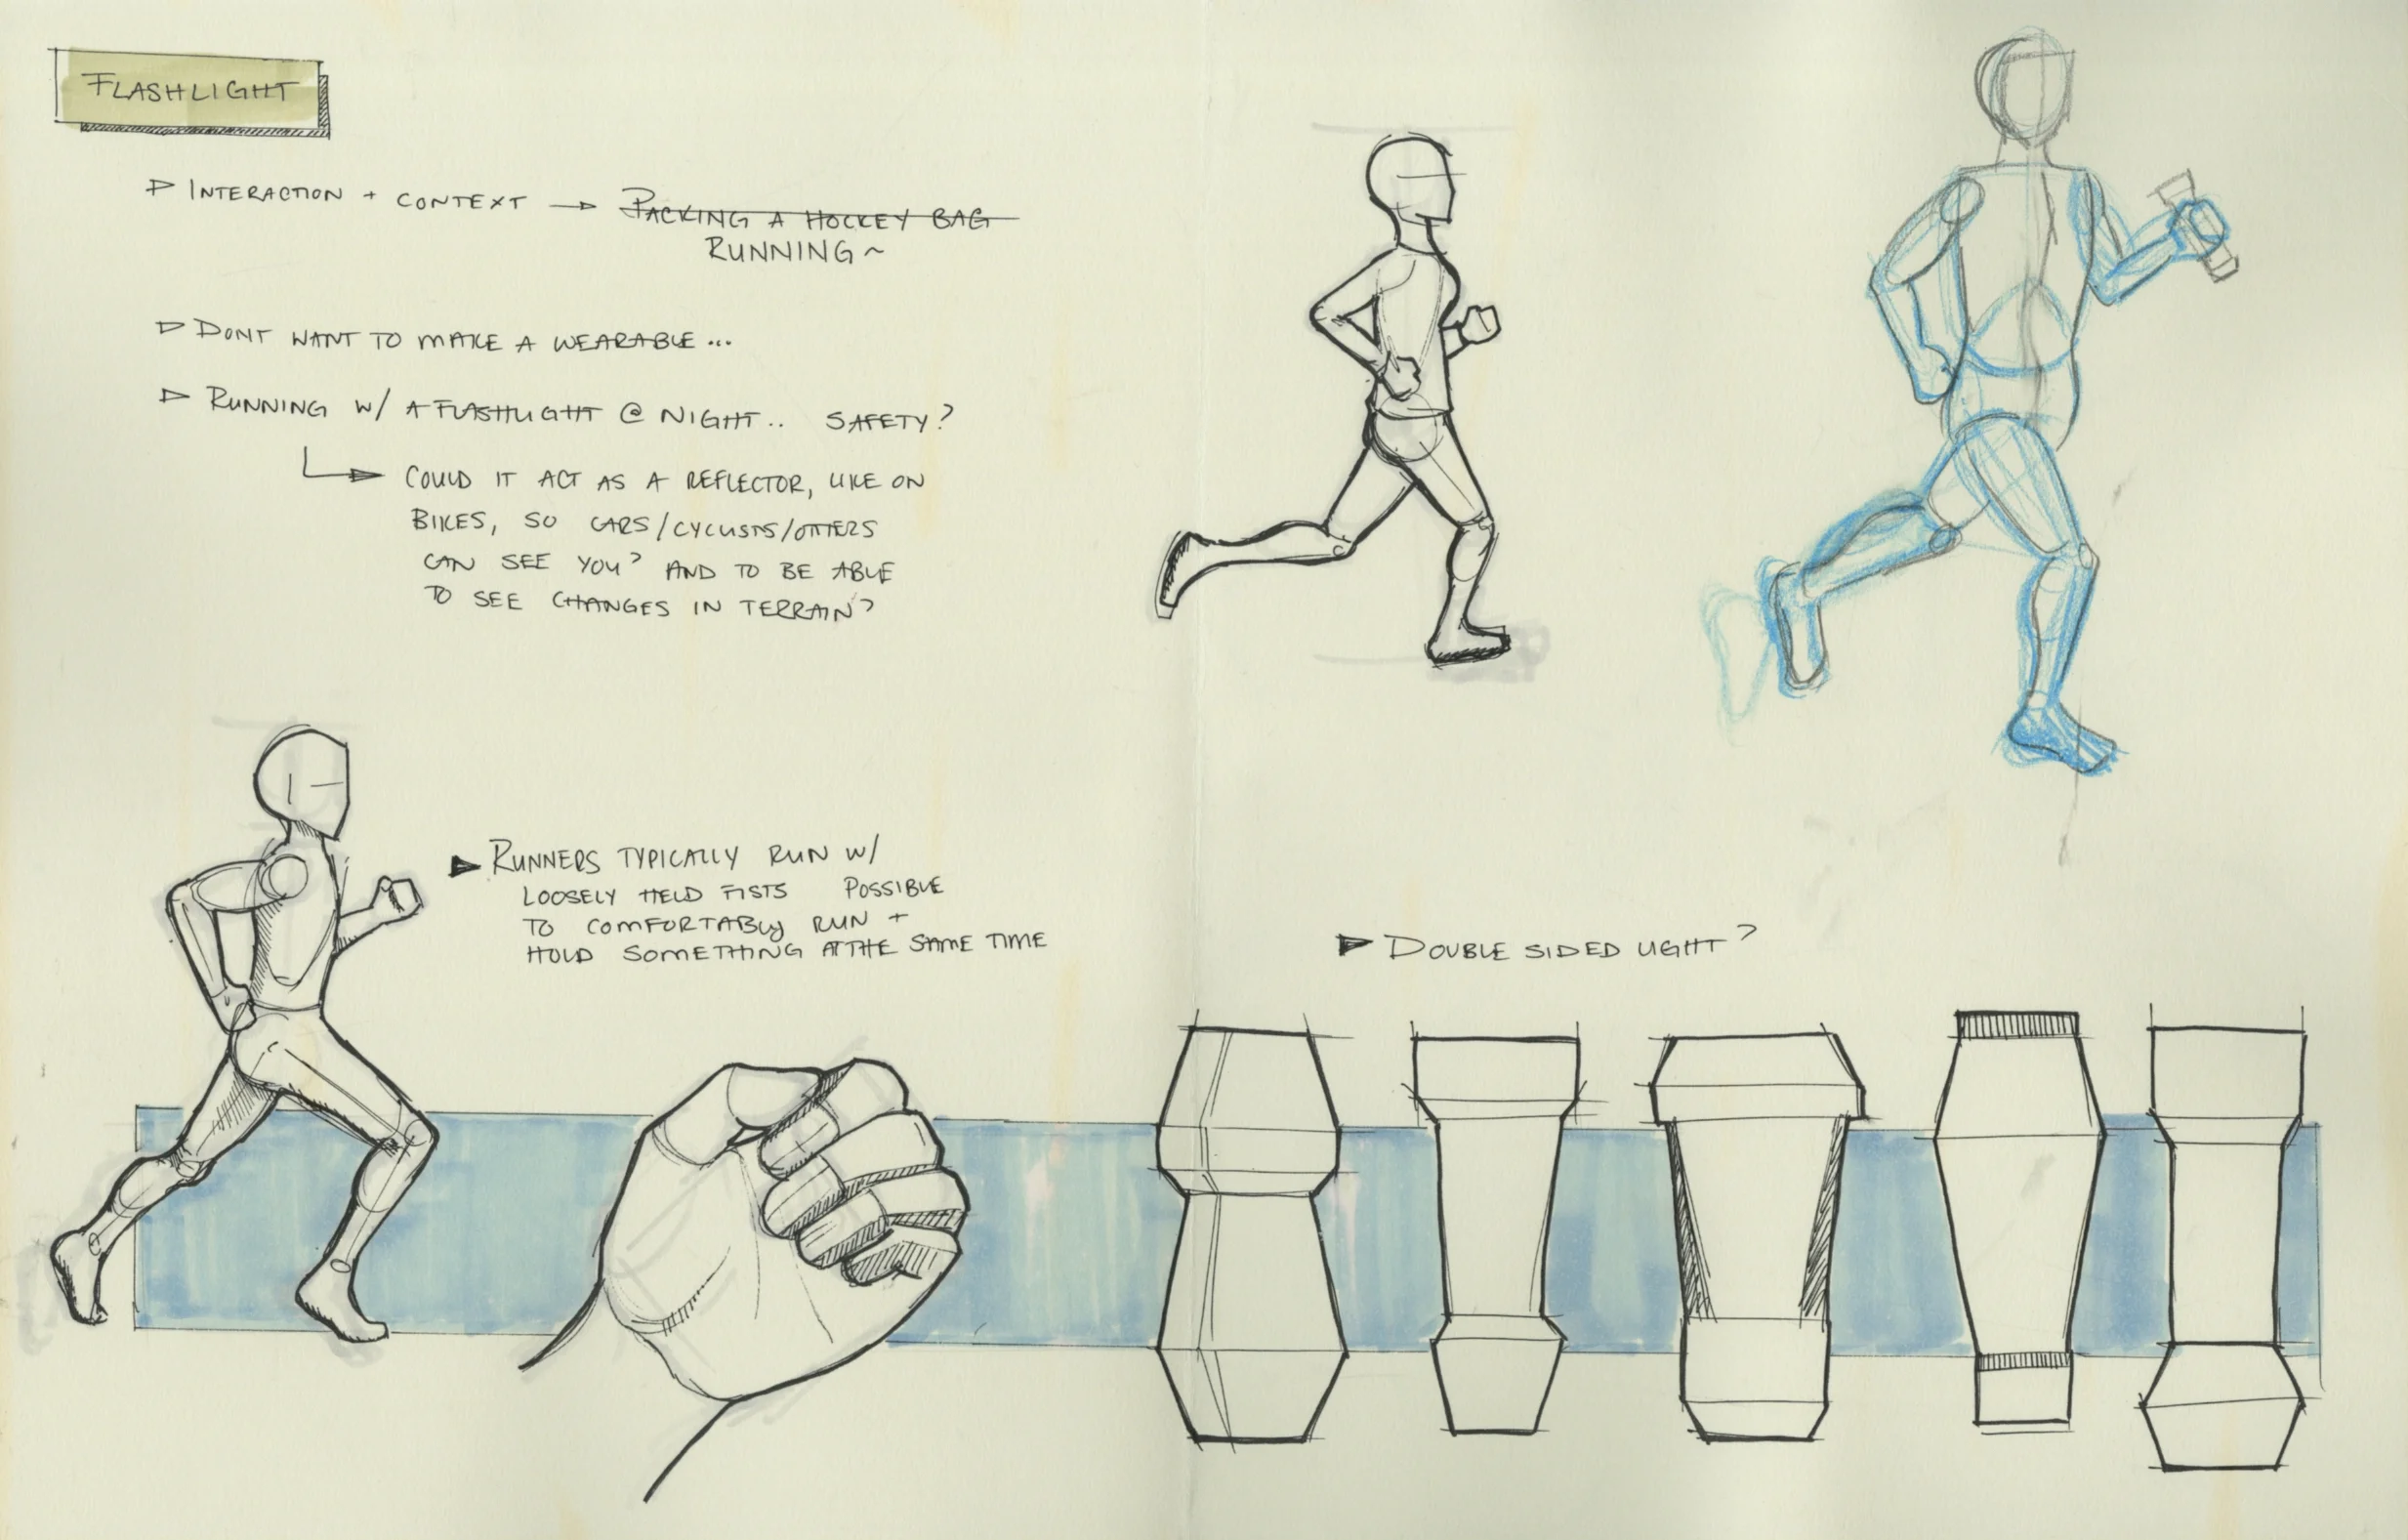 FLASHLIGHT
INTERACTION + CONTEXT → PACKING A HOCKEY BAG
RUNNING ~
DONT WANT TO MAKE A WEARABLE...
RUNNING W/ A FLASHLIGHT @ NIGHT.. SAFETY?
COULD IT ACT AS A REFLECTOR, LIKE ON
BIKES, SO CARS/CYCLISTS/OTHERS
CAN SEE YOU? AND TO BE ABLE
TO SEE CHANGES IN TERRAIN?
RUNNERS TYPICALLY RUN W/
LOOSELY HELD FISTS POSSIBLE
TO COMFORTABLY RUN +
HOLD SOMETHING AT THE SAME TIME
DOUBLE SIDED LIGHT?